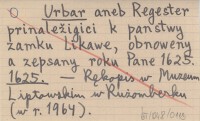 Urbar aneb Regester
prinaležigici k państwy
zamku Likawe, obnoweny
a zepsany roku Pane 1625.
1625. — Rękopis w Muzeum
Liptowskim w Rużomberku
(w r. 1964).